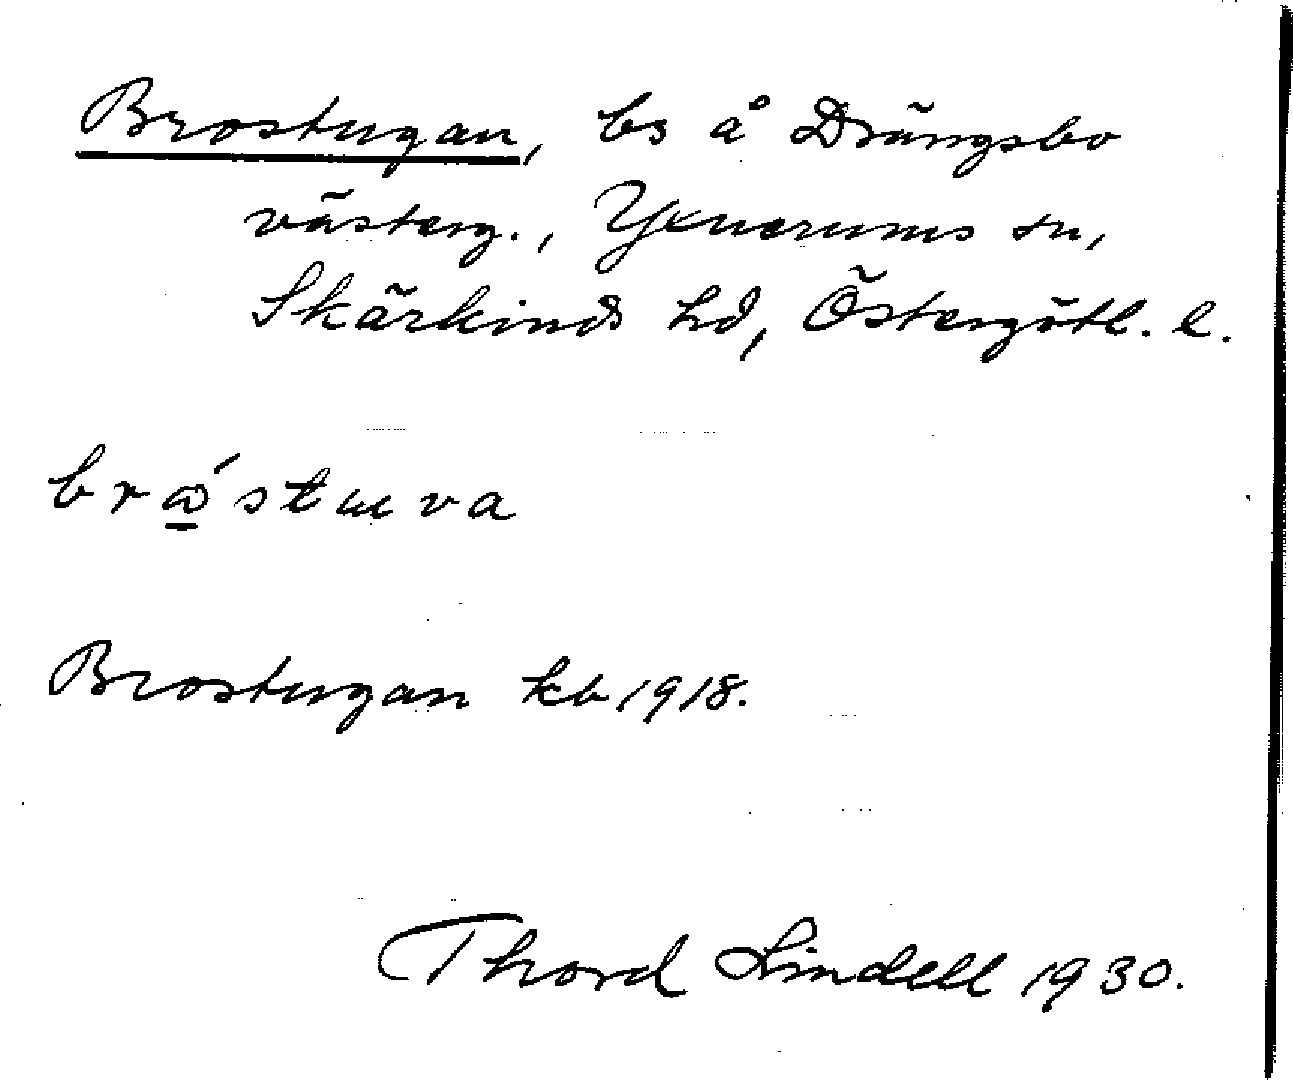 Brostugan, bs å Drängsbo
västerg., Yxnerums sn,
Skärkinds hd, Östergötl. l.
brώ̲stuva
Brostugan kb 1918.
Thord Lindell 1930.